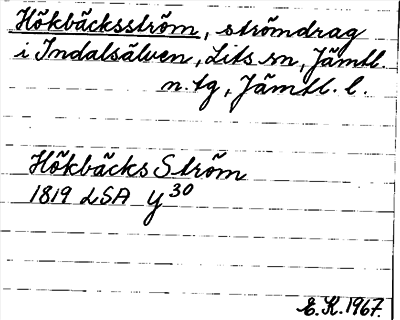 Hökbäcksström, strömdrag
i Indalsälven, Lits sn, Jämtl.
n. tg, Jämtl. l.
Hökbäcks Ström
1819 LSA y 30
E. K. 1967.